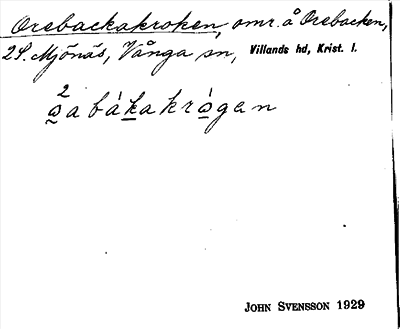 Orebackakroken, omr. å Orebacken,
2 S. Mjönäs, Vånga sn, Villands hd, Krist. l.
2
JOHN SVENSSON 1929